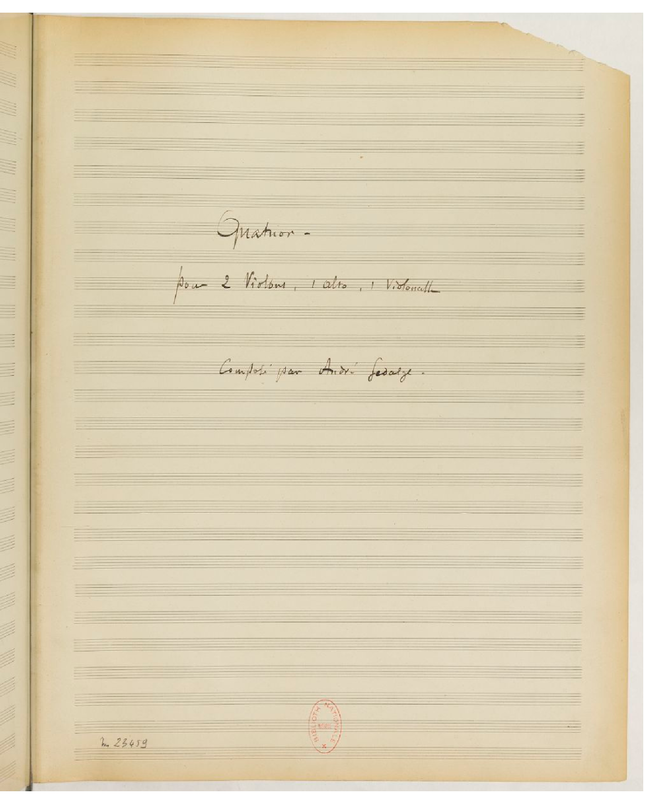 Quatuor -
pour 2 Violons, 1 alto, 1 Violoncelle
Composé par André Gedalge.
BIBLIOTH. NATIONALE
23459